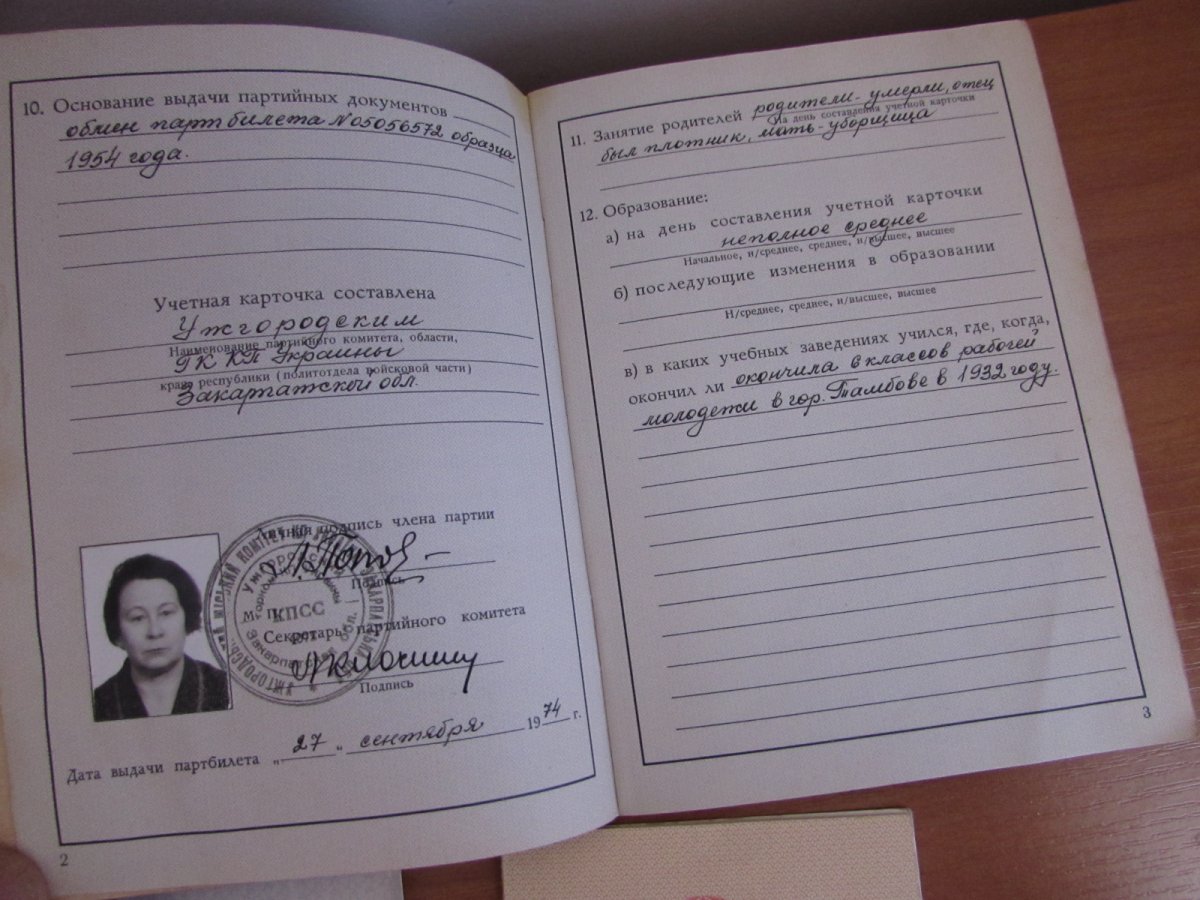 10. Основание выдачи партийных документов
обмен партбилета №05056572 образца
1954 года.
Учетная карточка составлена
Ужгородским
Наименование партийного комитета, области,
ГК КП Украины
края республики (политотдела войсковой части)
Закарпатской обл.
Личная подпись члена партии
Подпись
М. П.
КПСС
Секретарь партийного комитета
Подпись
Дата выдачи партбилета „27„ сентября 1974 г.
2
11. Занятие родителей родители - умерли, отец
на день составления учетной карточки
был плотник, мать - уборщица
12. Образование:
а) на день составления учетной карточки
неполное среднее
Начальное, н/среднее, среднее, н/высшее, высшее
б) последующие изменения в образовании
Н/среднее, среднее, н/высшее, высшее
в) в каких учебных заведениях учился, где, когда,
окончил ли окончила 6 классов рабочей
молодежи в гор. Тамбове в 1932 году.
3